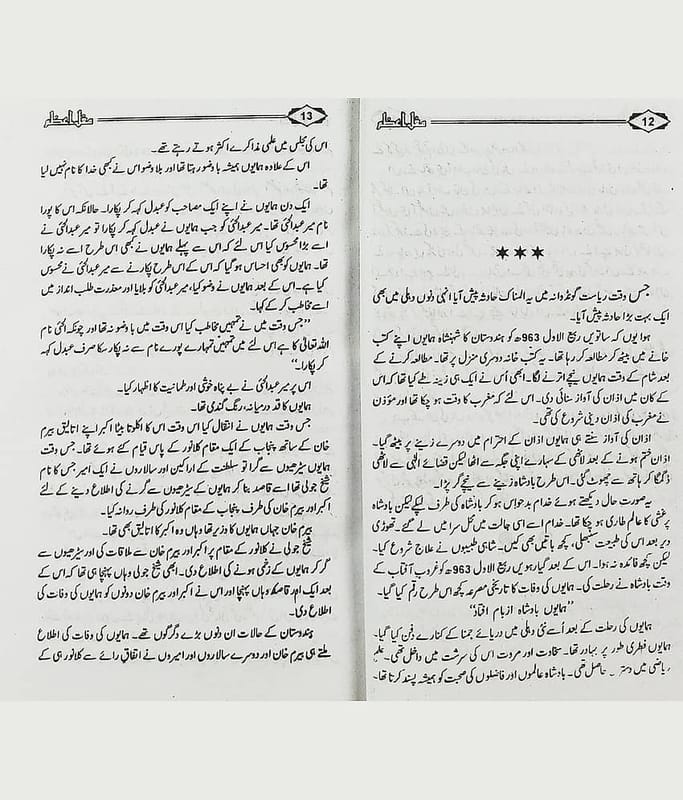 12
مغل اعظم
★★★
جس وقت ریاست گونڈوانہ میں یہ المناک حادثہ پیش آیا انہی دنوں دہلی میں بھی
ایک بہت بڑا حادثہ پیش آیا۔
ہوا یوں کہ ساتویں ربیع الاول 963ھ کو ہندوستان کا شہنشاہ ہمایوں اپنے کتب
خانے میں بیٹھ کر مطالعہ کر رہا تھا۔ یہ کتب خانہ دوسری منزل پر تھا۔ مطالعہ کرنے کے
بعد شام کے وقت ہمایوں نیچے اترنے لگا۔ ابھی اُس نے ایک ہی زینہ طے کیا تھا کہ اس
کے کان میں اذان کی آواز سنائی دی۔ اس لئے کہ مغرب کا وقت ہو چکا تھا اور مؤذن
نے مغرب کی اذان دینی شروع کی تھی۔
اذان کی آواز سنتے ہی ہمایوں اذان کے احترام میں دوسرے زینے پر بیٹھ گیا۔
اذان ختم ہونے کے بعد لاٹھی کے سہارے اپنی جگہ سے اٹھا لیکن قضائے الٰہی سے لاٹھی
ڈگمگا کر ہاتھ سے چھوٹ گئی۔ اس طرح بادشاہ زینے سے نیچے گر پڑا۔
یہ صورت حال دیکھتے ہوئے خدام بدحواس ہو کر بادشاہ کی طرف لپکے لیکن بادشاہ
پر غشی کا عالم طاری ہو چکا تھا۔ خدام اسے اسی حالت میں محل سرا میں لے گئے۔ تھوڑی
دیر بعد اس کی طبیعت سنبھلی، کچھ باتیں بھی کیں۔ شاہی طبیبوں نے علاج شروع کیا۔
لیکن کچھ فائدہ نہ ہوا۔ اس کے بعد گیارہویں ربیع الاول 963ھ کو غروب آفتاب کے
وقت بادشاہ نے رحلت کی۔ ہمایوں کی وفات کا تاریخی مصرعہ کچھ اس طرح رقم کیا گیا۔
"ہمایوں بادشاہ از بام افتاد"
ہمایوں کی رحلت کے بعد اُسے نئی دہلی میں دریائے جمنا کے کنارے دفن کیا گیا۔
ہمایوں فطری طور پر بہادر تھا۔ سخاوت اور مروت اس کی سرشت میں داخل تھی۔ علم
ریاضی میں حاصل تھی۔ بادشاہ عالموں اور فاضلوں کی صحبت کو ہمیشہ پسند کرتا تھا۔
13
مغل اعظم
اس کی مجلس میں علمی مذاکرے اکثر ہوتے رہتے تھے۔
اس کے علاوہ ہمایوں ہمیشہ باوضو رہتا تھا اور بلا وضو اس نے کبھی خدا کا نام نہیں لیا
تھا۔
ایک دن ہمایوں نے اپنے ایک مصاحب کو عبدل کہہ کر پکارا۔ حالانکہ اس کا پورا
نام میر عبدالحئی تھا۔ میر عبدالحئی کو جب ہمایوں نے عبدل کہہ کر پکارا تو میر عبدالحئی نے
اسے بڑا محسوس کیا اس لئے کہ اس سے پہلے ہمایوں نے کبھی اس طرح اسے نہ پکارا
تھا۔ ہمایوں کو بھی احساس ہو گیا کہ اس کے اس طرح پکارنے سے میر عبدالحئی نے محسوس
کیا ہے۔ اس کے بعد ہمایوں نے وضو کیا، میر عبدالحئی کو بلایا اور معذرت طلب انداز میں
اسے مخاطب کر کے کہا۔
"جس وقت میں نے تمہیں مخاطب کیا اس وقت میں باوضو نہ تھا اور چونکہ الحئی نام
اللہ تعالیٰ کا ہے اس لئے میں تمہیں تمہارے پورے نام سے نہ پکار سکا صرف عبدل کہہ
کر پکارا۔"
اس پر میر عبدالحئی نے بے پناہ خوشی اور طمانیت کا اظہار کیا۔
ہمایوں کا قد درمیانہ، رنگ گندمی تھا۔
جس وقت ہمایوں نے انتقال کیا اس وقت اس کا اکلوتا بیٹا اکبر اپنے اتالیق بیرم
خان کے ساتھ پنجاب کے ایک مقام کلانور کے پاس قیام کئے ہوئے تھا۔ جس وقت
ہمایوں سیڑھیوں سے گرا تو سلطنت کے اراکین اور سالاروں نے ایک امیر جس کا نام
شیخ جولی تھا اسے قاصد بنا کر ہمایوں کے سیڑھیوں سے گرنے کی اطلاع دینے کے لئے
اکبر اور بیرم خان کی طرف پنجاب کے مقام کلانور کی طرف روانہ کیا۔
بیرم خان جہاں ہمایوں کا وزیر تھا وہاں وہ اکبر کا اتالیق بھی تھا۔
شیخ جولی نے کلانور کے مقام پر اکبر اور بیرم خان سے ملاقات کی اور سیڑھیوں سے
گر کر ہمایوں کے زخمی ہونے کی اطلاع دی۔ ابھی شیخ جولی وہاں پہنچا ہی تھا کہ اس کے
بعد ایک اور قاصد وہاں پہنچا اور اس نے اکبر اور بیرم خان دونوں کو ہمایوں کی وفات کی
اطلاع دی۔
ہندوستان کے حالات ان دنوں بڑے دگرگوں تھے۔ ہمایوں کی وفات کی اطلاع
ملتے ہی بیرم خان اور دوسرے سالاروں اور امیروں نے اتفاق رائے سے کلانور ہی کے